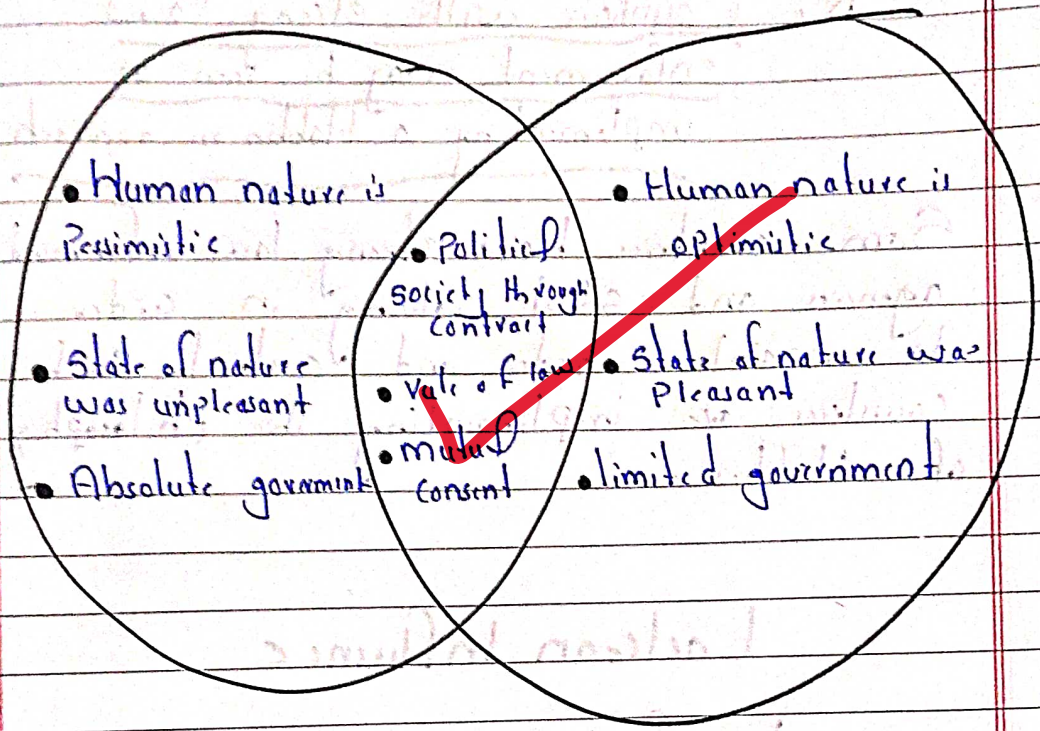 • Human nature is
Pessimistic
• State of nature
was unpleasant
• Absolute government
• Political
society through
contract
• rule of law
• mutual
consent
• Human nature is
optimistic
• State of nature was
pleasant
• limited government.